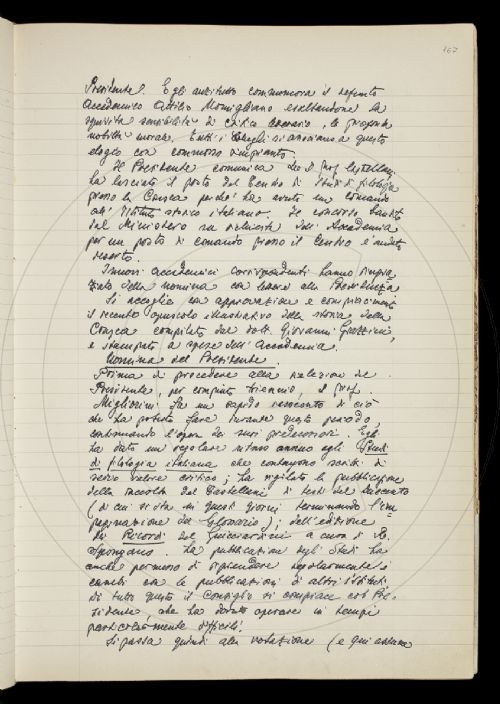 167
Presidente). Egli anzitutto commemora il defunto
Accademico Attilio Momigliano esaltandone la
squisita sensibilità di critico letterario, la profonda
nobiltà morale. Tutti i Colleghi si associano a questo
elogio con commosso rimpianto.
Il Presidente comunica che il Prof. Castellani
ha lasciato il posto del Centro di Studi di filologia
presso la Crusca perché ha avuto un comando
all'Istituto storico italiano. Il concorso bandito
dal Ministero su richiesta dell'Accademia
per un posto di comando presso il Centro è andato
deserto.
I nuovi accademici corrispondenti hanno ringra
ziato della nomina con lettere alla Presidenza
Si accoglie con approvazione e compiacimento
il recente opuscolo illustrativo della storia della
Crusca compilato dal dott. Giovanni Grazzini,
e stampato a spese dell'Accademia.
Nomina del Presidente.
Prima di procedere alla rielezione del
Presidente, per compiuto triennio, il prof.
Migliorini fa un rapido resoconto di ciò
che ha potuto fare durante questo periodo,
continuando l'opera dei suoi predecessori. Egli
ha dato un regolare ritmo annuo agli Studi
di filologia italiana che contengono scritti di
serio valore critico; ha vigilato la pubblicazione
della raccolta del Castellani di testi del Duecento
(di cui si sta in questi giorni terminando l'im
paginazione del Glossario); dell'edizione
dei Ricordi del Guicciardini a cura di R.
Spongano. La pubblicazione degli Studi ha
anche permesso di riprendere regolarmente i
cambi con le pubblicazioni di altri istituti.
Di tutto questo il Consiglio si compiace col Pre-
sidente, che ha dovuto operare in tempi
particolarmente difficili.
Si passa quindi alla votazione (e qui